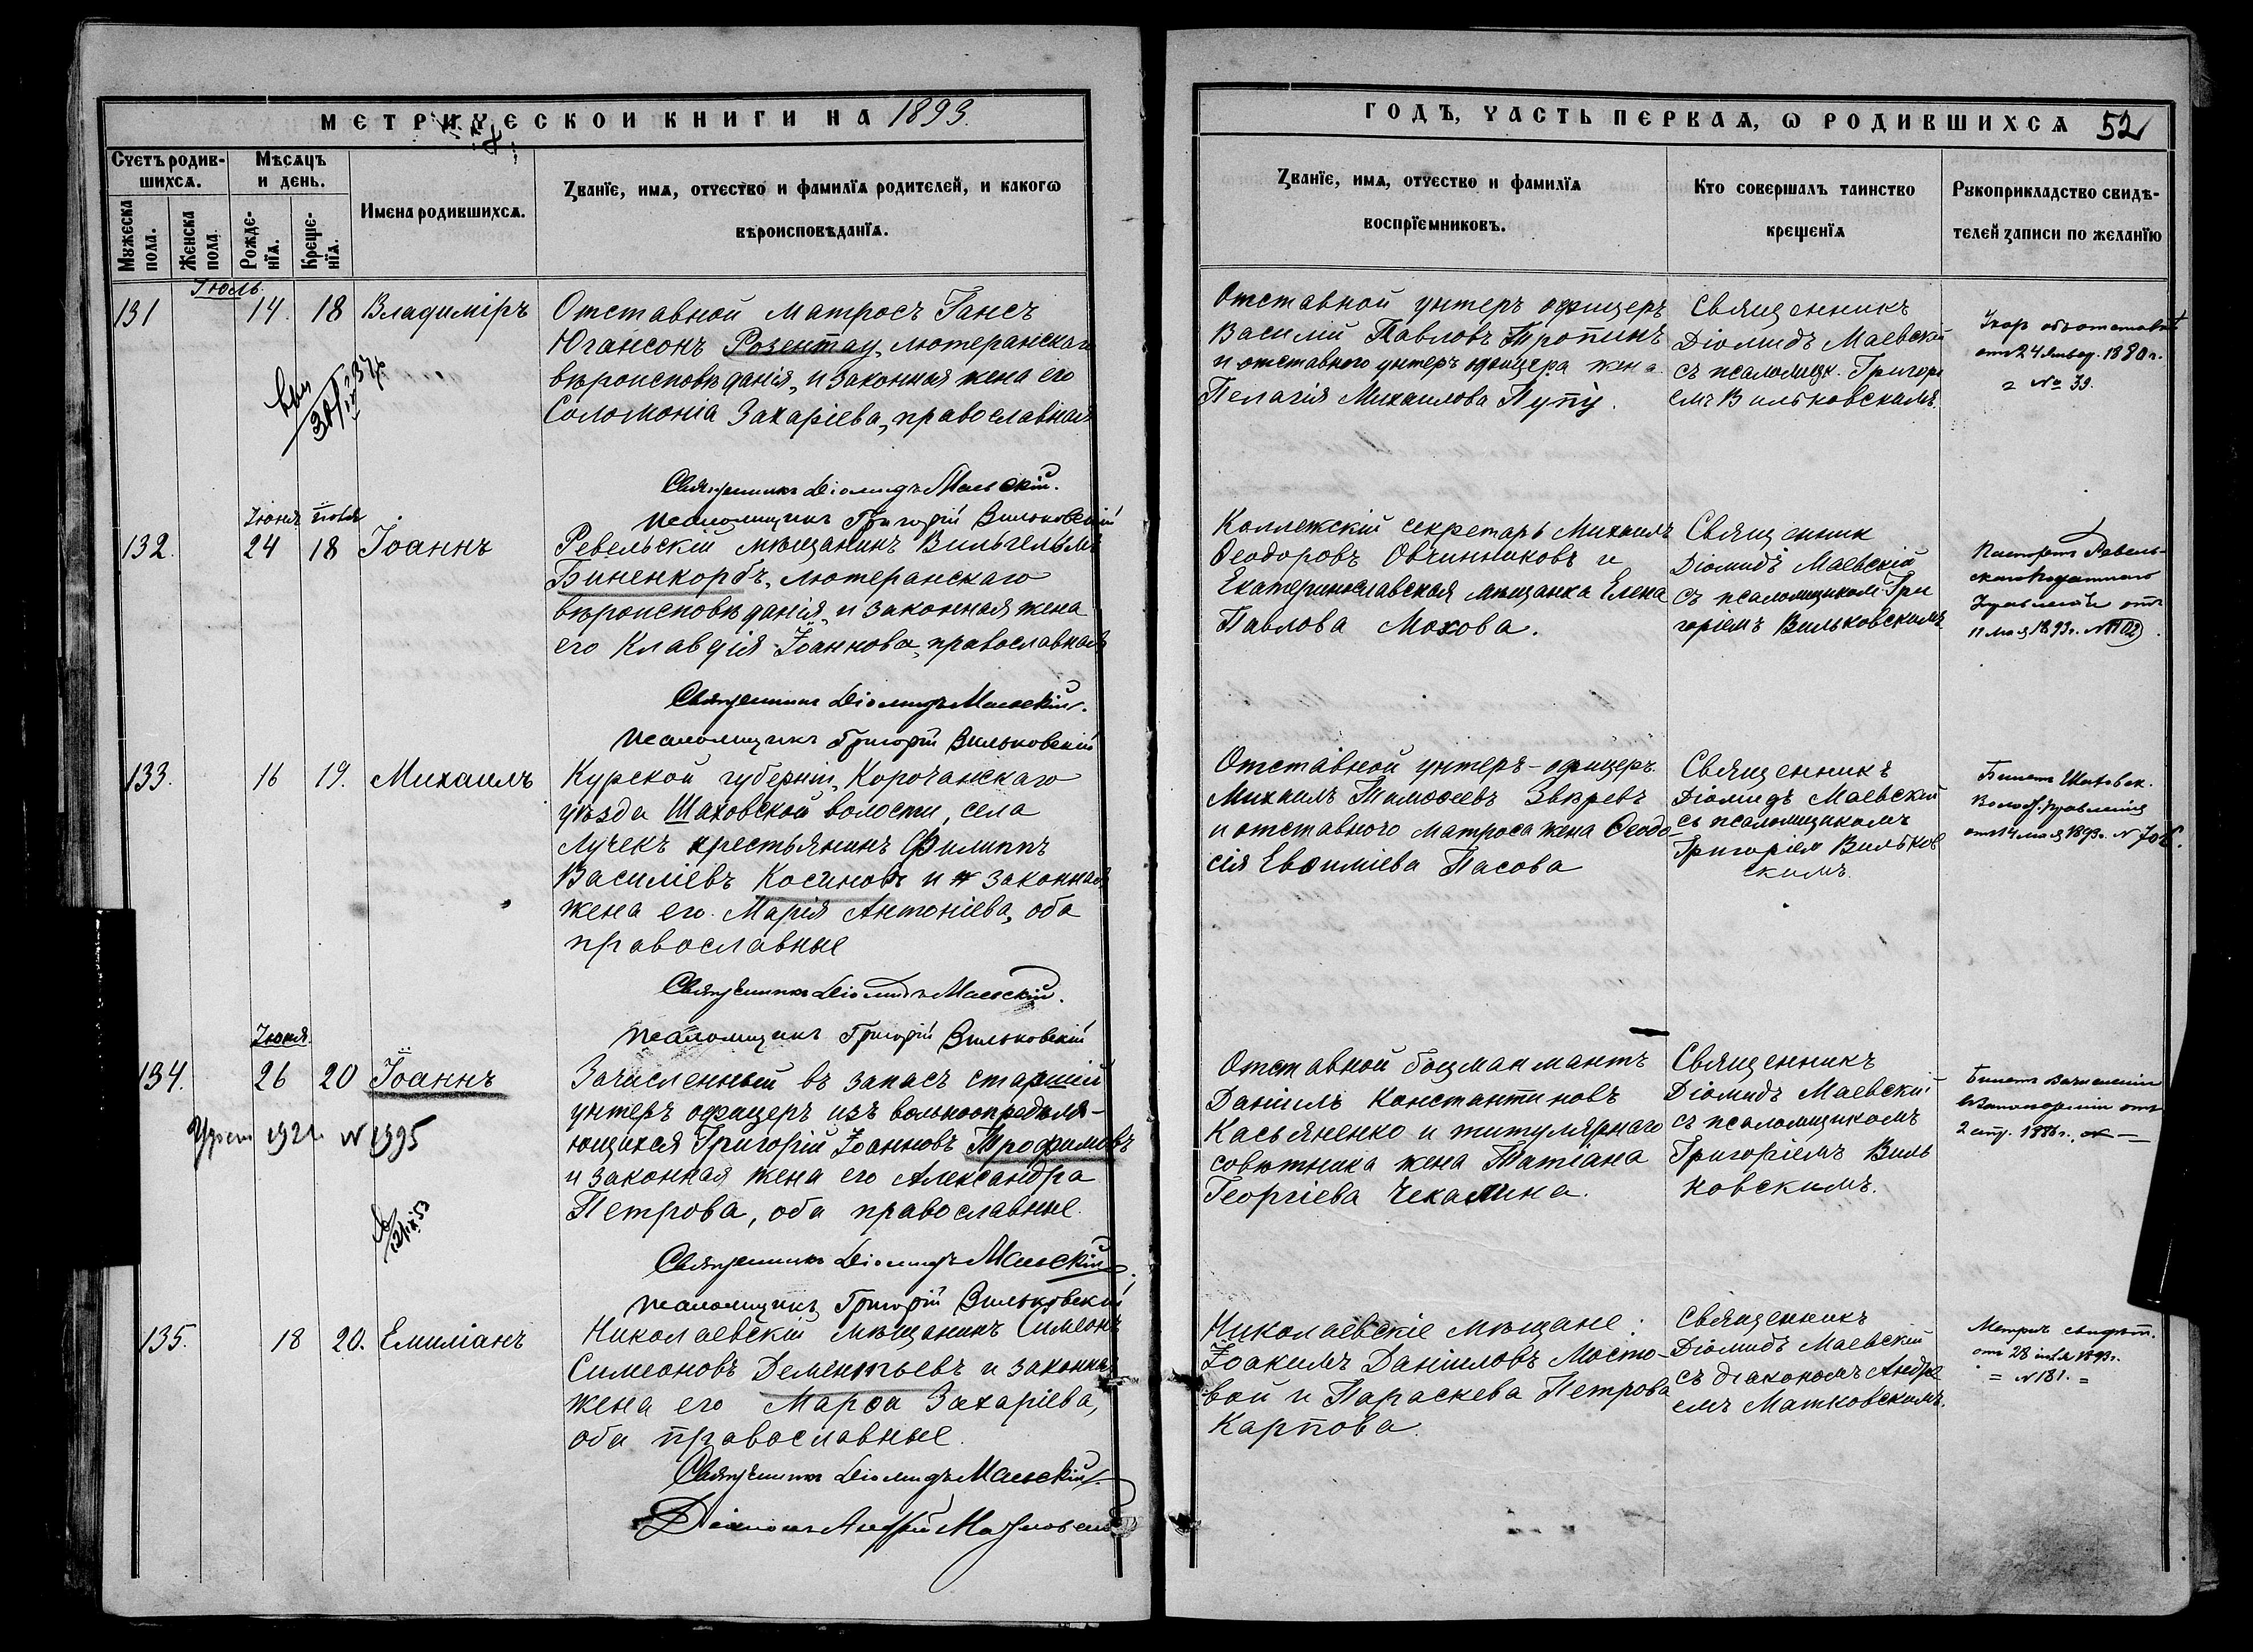 МЕТРИЧЕСКОЙ КНИГИ НА 1893.
Счетъ родив-
шихся.
Мѣсяцъ
и день.
Мужеска
пола.
Женска
пола.
Рожде-
нїя.
Креще-
нїя.
Имена родившихся.
Званїе, имя, отчество и фамилїя родителей, и какогѡ
вѣроисповѣданїя.
Іюль.
131 14. 18 Владиміръ Отставной матросъ Гансъ
Югансонъ Розентау, лютеранскаго
вѣроисповѣданія, и законная жена его
Соломонія Захаріева, православная
Священникъ Діомидъ Маевскій.
Псаломщикъ Григорій Вильковскій
Іюня Іюля
132. 24 18 Іоаннъ Ревельскій мѣщанинъ Вильгельмъ
Биненкорбъ, лютеранскаго
вѣроисповѣданія, и законная жена
его Клавдія Іоаннова, православная
Священникъ Діомидъ Маевскій.
Псаломщикъ Григорій Вильковскій
133. 16 19. Михаилъ Курской губерніи, Корочанскаго
уѣзда Шаховской волости, села
Лучекъ крестьянинъ Филиппъ
Василіевъ Косиновъ и законная
жена его Марія Антоніева, оба
православные
Священникъ Діомидъ Маевскій.
Псаломщикъ Григорій Вильковскій
Іюня.
134. 26 20 Іоаннъ Зачисленный въ запасъ старшій
унтеръ офицеръ изъ вольноопредѣля-
ющихся Григорій Іоанновъ Трофимовъ
и законная жена его Александра
Петрова, оба православные.
1921. N 1395
Священникъ Діомидъ Маевскій.
Псаломщикъ Григорій Вильковскій
135. 18 20. Емиліанъ Николаевскій мѣщанинъ Симеонъ
Симеоновъ Дементьевъ и законная
жена его Марѳа Захаріева,
оба православные.
Священникъ Діомидъ Маевскій.
Діаконъ Андрей Матковскій
ГОДЪ, ЧАСТЬ ПЕРВАЯ, Ѡ РОДИВШИХСЯ 52
Званїе, имя, отчество и фамилїя
воспрїемниковъ.
Кто совершалъ таинство
крещенїя
Рукоприкладство свидѣ-
телей записи по желанїю
Отставной унтеръ офицеръ
Василій Павловъ Тропинъ
и отставного унтеръ офицера жена
Пелагія Михаилова Пупу.
Священникъ
Діомидъ Маевскій
съ псаломщик. Григорі
емъ Вильковскимъ.
Указ объ отставкѣ
отъ 24 Январ. 1880 г.
= № 39.
Коллежскій секретарь Михаилъ
Ѳеодоровъ Овчинниковъ и
Екатеринославская мѣщанка Елена
Павлова Мохова.
Священник
Діомидъ Маевскій
съ псаломщикомъ Гри
горіемъ Вильковскимъ
Паспортъ Ревель-
скаго Податнаго
Управленія отъ
11 мая 1893 г. № 1102.
Отставной унтеръ-офицеръ
Михаилъ Тимоѳеевъ Звѣревъ
и отставного матроса жена Ѳеодо-
сія Евѳиміева Пасова
Священникъ
Діомидъ Маевскій
съ псаломщикомъ
Григоріем Вильков
скимъ.
Билетъ Шаховск.
Волост. правленія
отъ 14 мая 1893 г. N
Отставной боцманматъ
Даніилъ Константиновъ
Касьяненко и титулярнаго
совѣтника жена Татіана
Георгіева Чекалина.
Священникъ
Діомидъ Маевскій
съ псаломщикомъ
Григоріемъ Виль
ковскимъ.
Билетъ
отъ
2 апр. 1886 г.
Николаевскіе мѣщане:
Іоакимъ Даніиловъ Мосто-
вой и Параскева Петрова
Карпова.
Священникъ
Діомидъ Маевскій
съ діакономъ Андре
емъ Матковскимъ.
Метрич. свидѣт.
отъ 28 1893 г.
= N 181. =